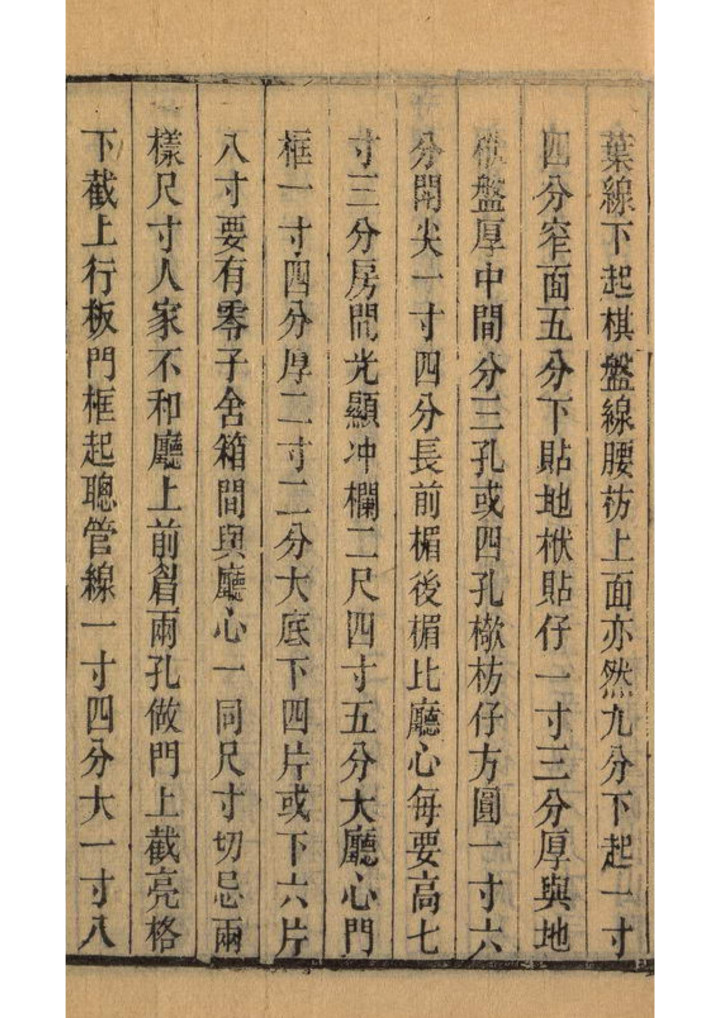 葉線下起棋盤線腰枋上面亦然九分下起一寸
四分窄面五分下貼地栿貼仔一寸三分厚與地
栿盤厚中間分三孔或四孔㯭枋仔方圓一寸六
分開尖一寸四分長前楣後楣比廳心每要高七
寸三分房間光顯冲欄二尺四寸五分大廳心門
框一寸四分厚二寸二分大底下四片或下六片
八寸要有零子舍箱間與廳心一同尺寸切忌兩
樣尺寸人家不和廳上前眉兩孔做門上截亮格
下截上行板門框起聰管線一寸四分大一寸八